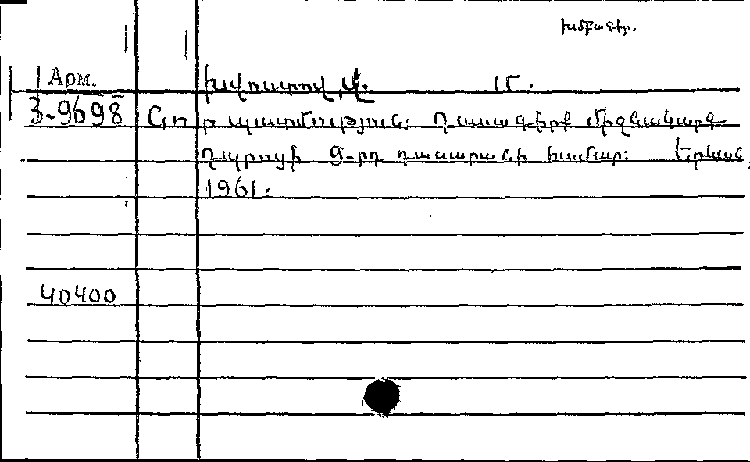 խմբագիր.
Арм.
Խվոստով, Վ. Մ.
3-9698
Նոր պատմություն: Դասագիրք միջնակարգ
դպրոցի 9-րդ դասարանի համար: Երևան,
1961.
40400